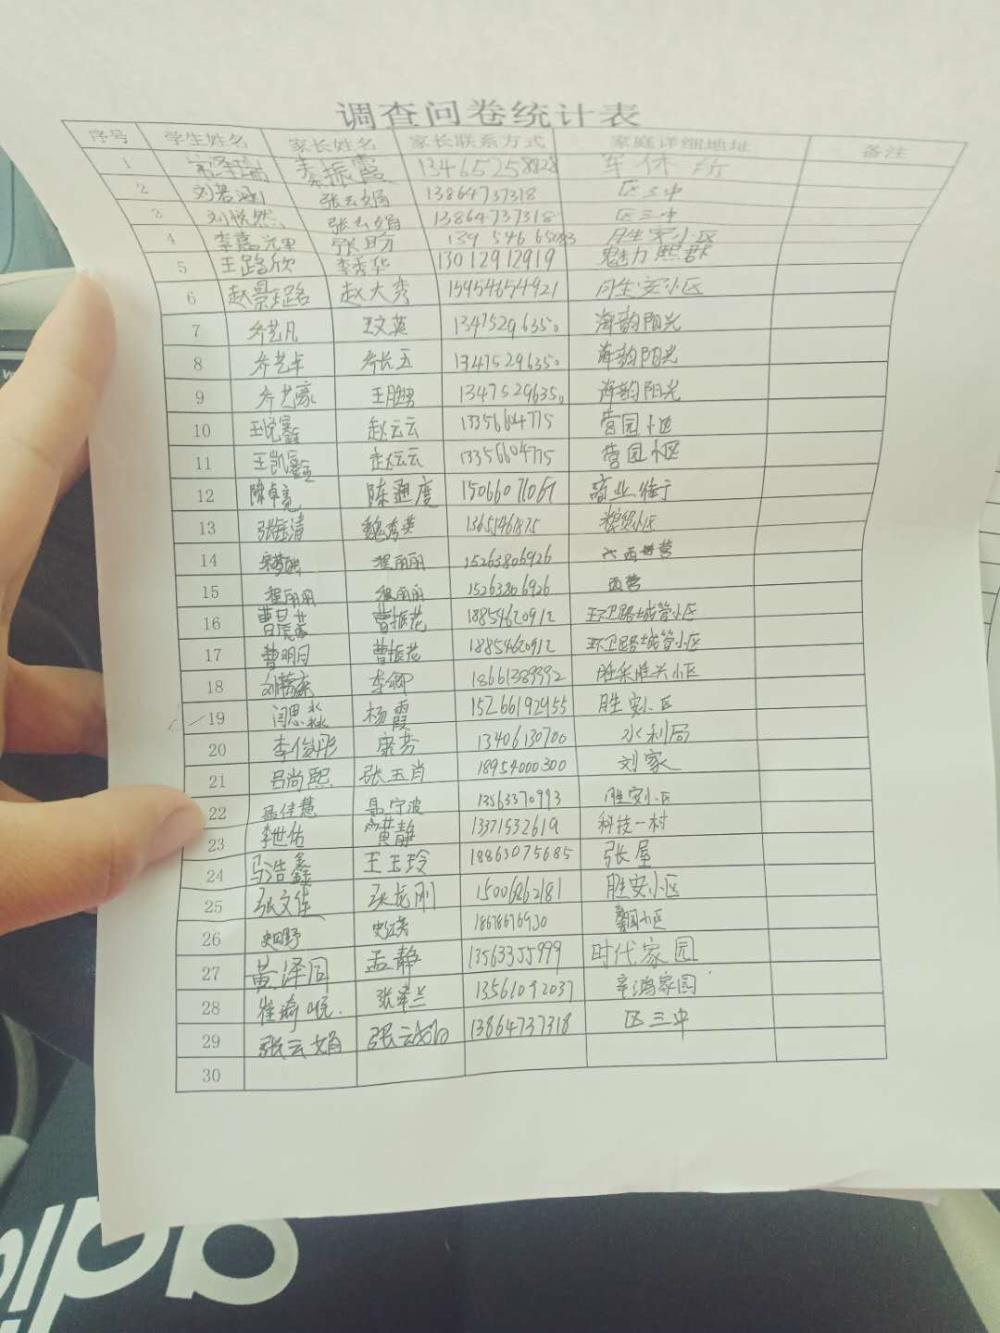 调查问卷统计表
序号 学生姓名 家长姓名 家长联系方式 家庭详细地址 备注
1 宋泽瑞 秦振霞 13465258828 军休所
2 刘若涵 张云娟 13864737318 区三中
3 刘悦然 张云娟 13864737318 区三中
4 李嘉元 张昉 胜安小区
5 王路欣 李秀华 13012912919 魅力熙郡
6 赵景璐 赵大秀 15954654921 胜安小区
7 乔艺凡 王文英 13475296350 海韵阳光
8 乔艺卓 乔长五 13475296350 海韵阳光
9 乔艺豪 王胜男 13475296350 海韵阳光
10 王悦鑫 赵云云 13356604775 营园小区
11 王凯鑫 赵云云 13356604775 营园小区
12 陈卓亮 陈迎度 15066071069 商业街
13 张钰清 魏秀英 粮贸小区
14 程丽丽 15263806926 西营
15 程丽丽 程丽丽 15263806926 西营
16 曹昆英 曹振花 18854620912 环卫路城管小区
17 曹明月 曹振花 18854620912 环卫路城管小区
18 李卿 18661389992 胜采胜兴小区
19 闫思淼 杨霞 15266192955 胜安小区
20 李俊彤 宋芳 13406130700 水利局
21 吕尚熙 张玉肖 18954000300 刘家
22 聂佳慧 聂宁波 13563370993 胜安小区
23 李世佑 黄静 13371532619 科技一村
24 马浩鑫 王玉玲 18863075685 张屋
25 张文佳 张龙刚 15006862181 胜安小区
26 史田野 18678676930 小区
27 黄泽同 孟静 13563355999 时代家园
28 崔瑜 张泽兰 13561092037 辛鸿家园
29 张云娟 张云娟 13864737318 区三中
30
adi